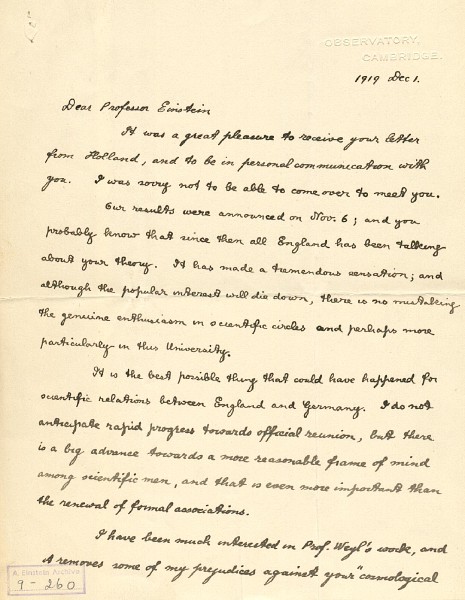 OBSERVATORY,
CAMBRIDGE.
1919 Dec 1.
Dear Professor Einstein
It was a great pleasure to receive your letter
from Holland, and to be in personal communication with
you. I was sorry not to be able to come over to meet you.
Our results were announced on Nov. 6; and you
probably know that since then all England has been talking
about your theory. It has made a tremendous sensation; and
although the popular interest will die down, there is no mistaking
the genuine enthusiasm in scientific circles and perhaps more
particularly in this University.
It is the best possible thing that could have happened for
scientific relations between England and Germany. I do not
anticipate rapid progress towards official reunion, but there
is a big advance towards a more reasonable frame of mind
among scientific men, and that is even more important than
the renewal of formal associations.
I have been much interested in Prof. Weyl's work, and
it removes some of my prejudices against your "cosmological
A. Einstein Archive
9-260